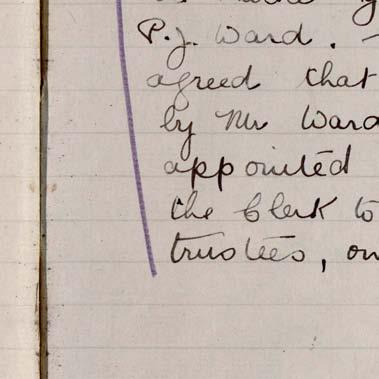 P. J. Ward. -
agreed that
by Mr Ward
appointed
the Clerk to
trustees, on